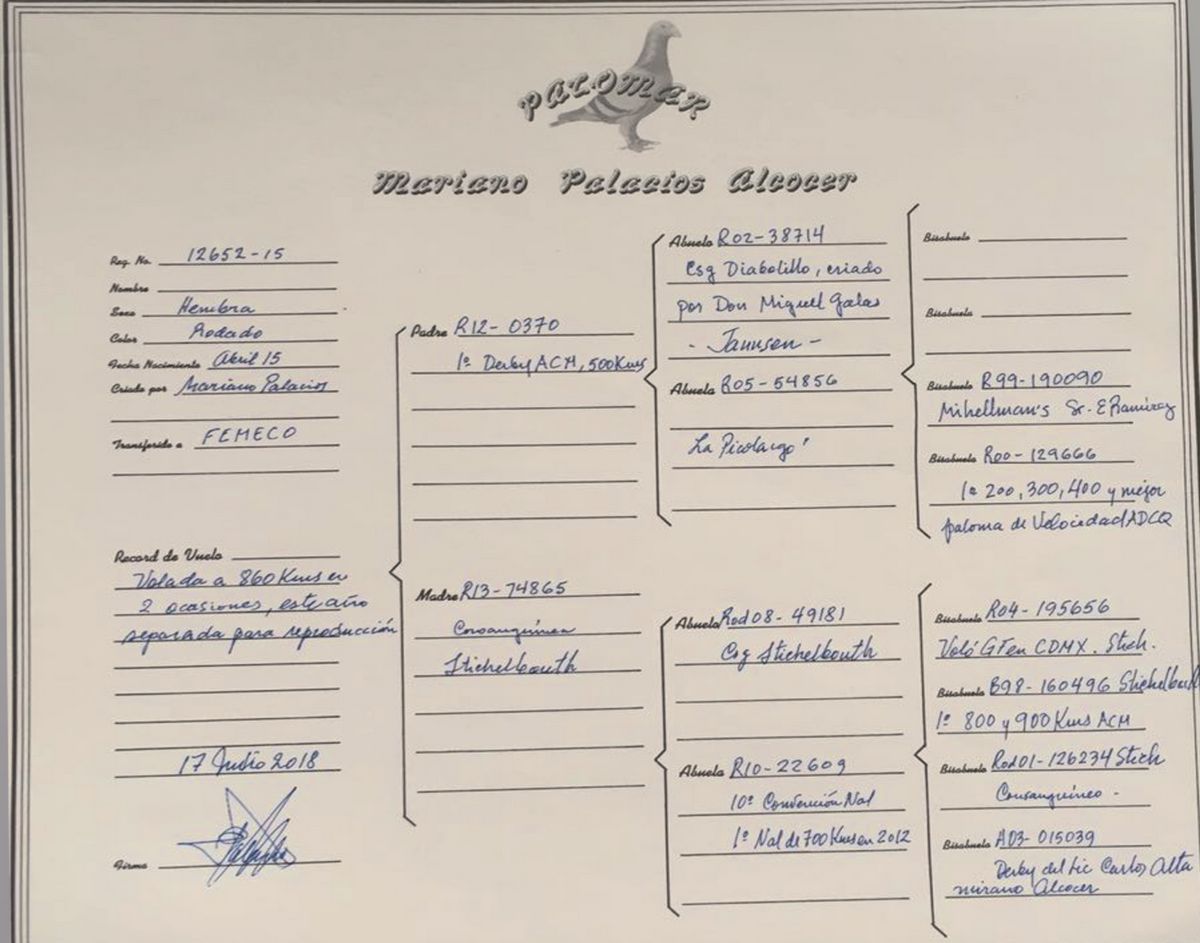 PALOMAR
Mariano Palacios Alcocer
Reg. No. 12652-15
Nombre
Sexo Hembra
Color Rodado
Fecha Nacimiento Abril 15
Criado por Mariano Palacios
Transferido a FEMECO
Record de Vuelo
Volada a 860 Kms en
2 ocasiones, este año
separada para reproducción
17 Julio 2018
Firma
Padre R12-0370
1º Derby ACM, 500 Kms
Madre R13-74865
Consanguínea
Stichelbouth
Abuelo R02-38714
Csg Diabolillo, criado
por Don Miguel Galas
- Jannsen -
Abuela R05-54856
La Picolargo
Abuelo Rod08-49181
Csg Stichelbouth
Abuela R10-22609
10º Convención Nal
1º Nal de 700 Kms en 2012
Bisabuelo
Bisabuela
Bisabuelo R99-190090
Mihellman's Sr. E Ramírez
Bisabuela R00-129666
1ª 200, 300, 400 y mejor
paloma de Velocidad ADCQ
Bisabuelo R04-195656
Voló GF en CDMX. Stich.
Bisabuela B98-160496
1º 800 y 900 Kms ACM
Bisabuelo Rod01-126234 Stich
Consanguíneo -
Bisabuela A03-015039
Derby del Lic Carlos Alta
mirano Alcocer